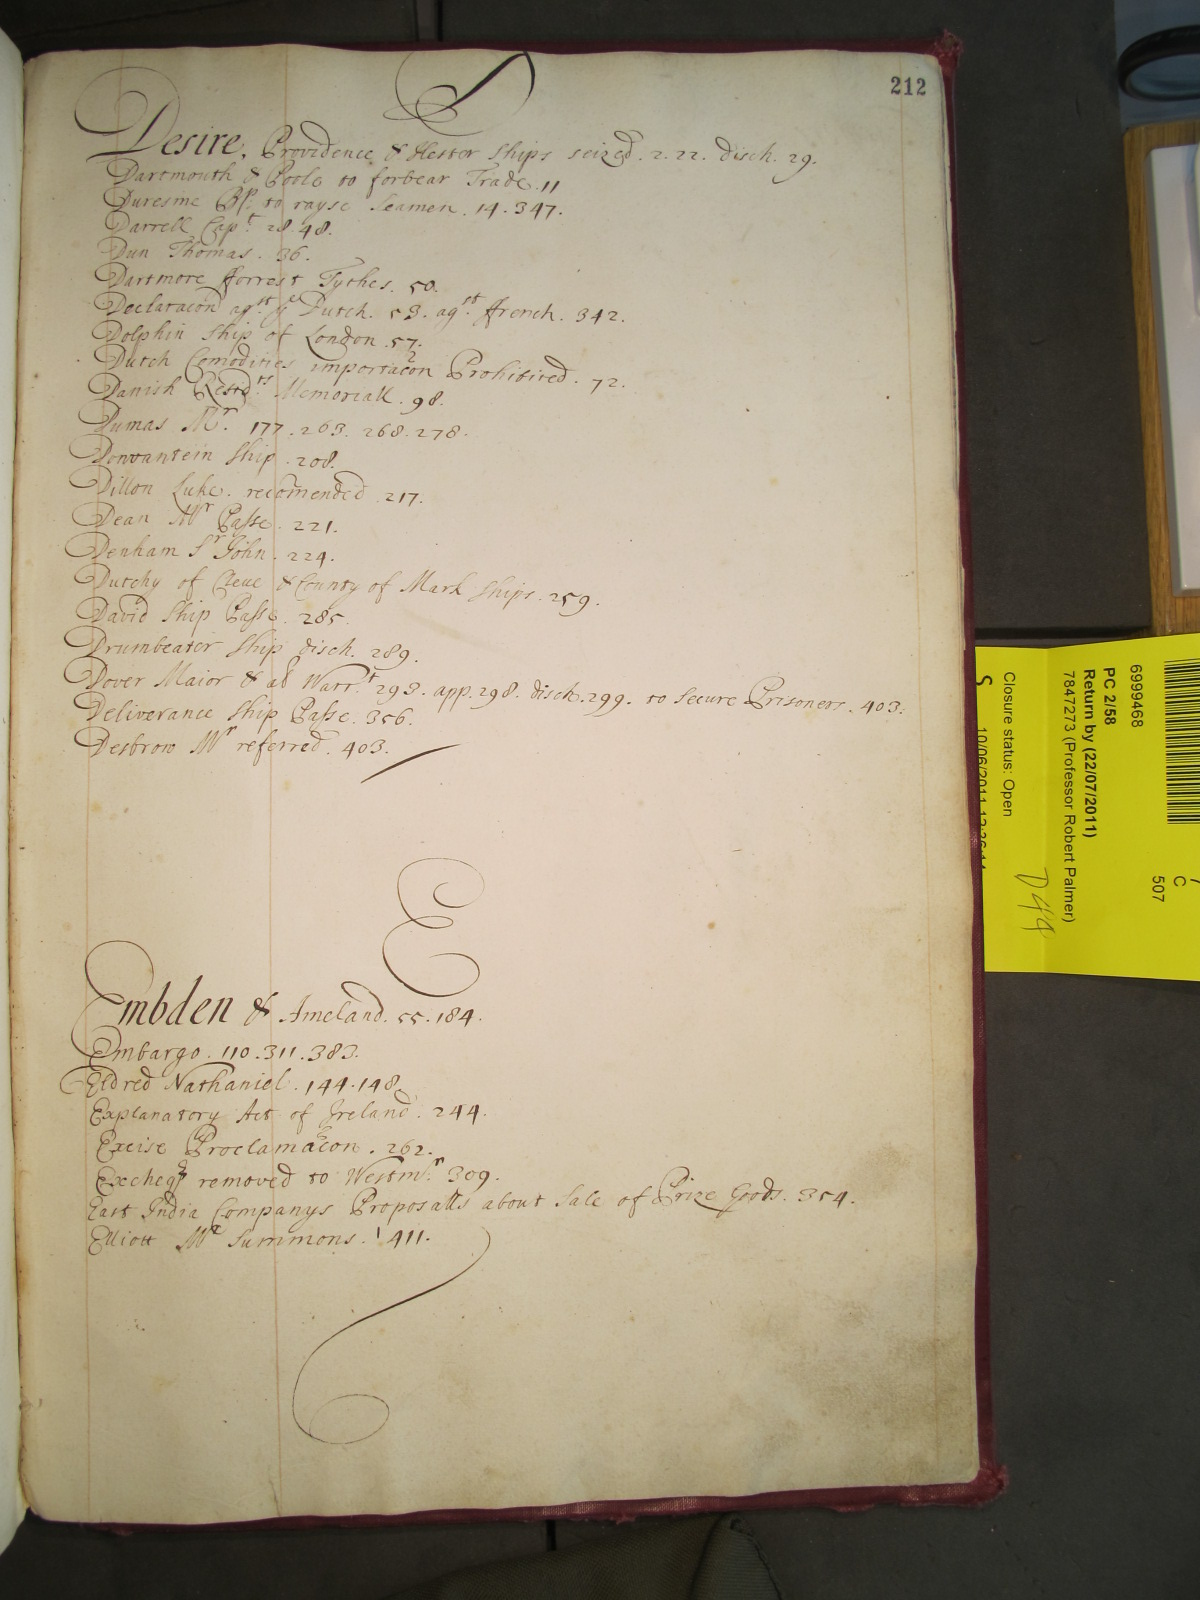 212
D
Desire, Providence & Hester Ships seized. 2. 22. disch. 29.
Dartmouth & Poole to forbear Trade. 11
Duresme Bp. to rayse Seamen. 14. 347.
Darrell Capt. 28. 48.
Dun Thomas. 36.
Dartmore fforrest Tythes. 50.
Declaracon agst. ye Dutch. 53. agst. ffrench. 342.
Dolphin Ship of London. 57.
Dutch Comodities importacon Prohibited. 72.
Danish Residts. Memoriall. 98.
Dumas Mr. 177. 263. 268. 278.
Ship. 208.
Dillon Luke. recomended. 217.
Dean Mr Passe. 221.
Denham Sr John. 224.
Dutchy of Cleve & County of Mark Ships. 259.
David Ship Passe. 285.
Drumbeater Ship disch. 289.
Dover Maior & al Warrt. 293. app. 298. disch. 299. to Secure Prisoners. 403.
Deliverance Ship Passe. 356.
Desbrow Mr referred. 403.
E
Embden & Ameland. 55. 184.
Embargo. 110. 311. 383.
Eldred Nathaniel. 144. 148
Explanatory Act of Ireland. 244.
Excise Proclamacon. 262.
Excheqr removed to Westmr. 309.
East India Companys Proposalls about Sale of Prize Goods. 354.
Elliott Mr Summons. 411.
6999468
PC 2/58
Return by (22/07/2011)
7847273 (Professor Robert Palmer)
Closure status: Open
S
10/06/2011
C
507
D44